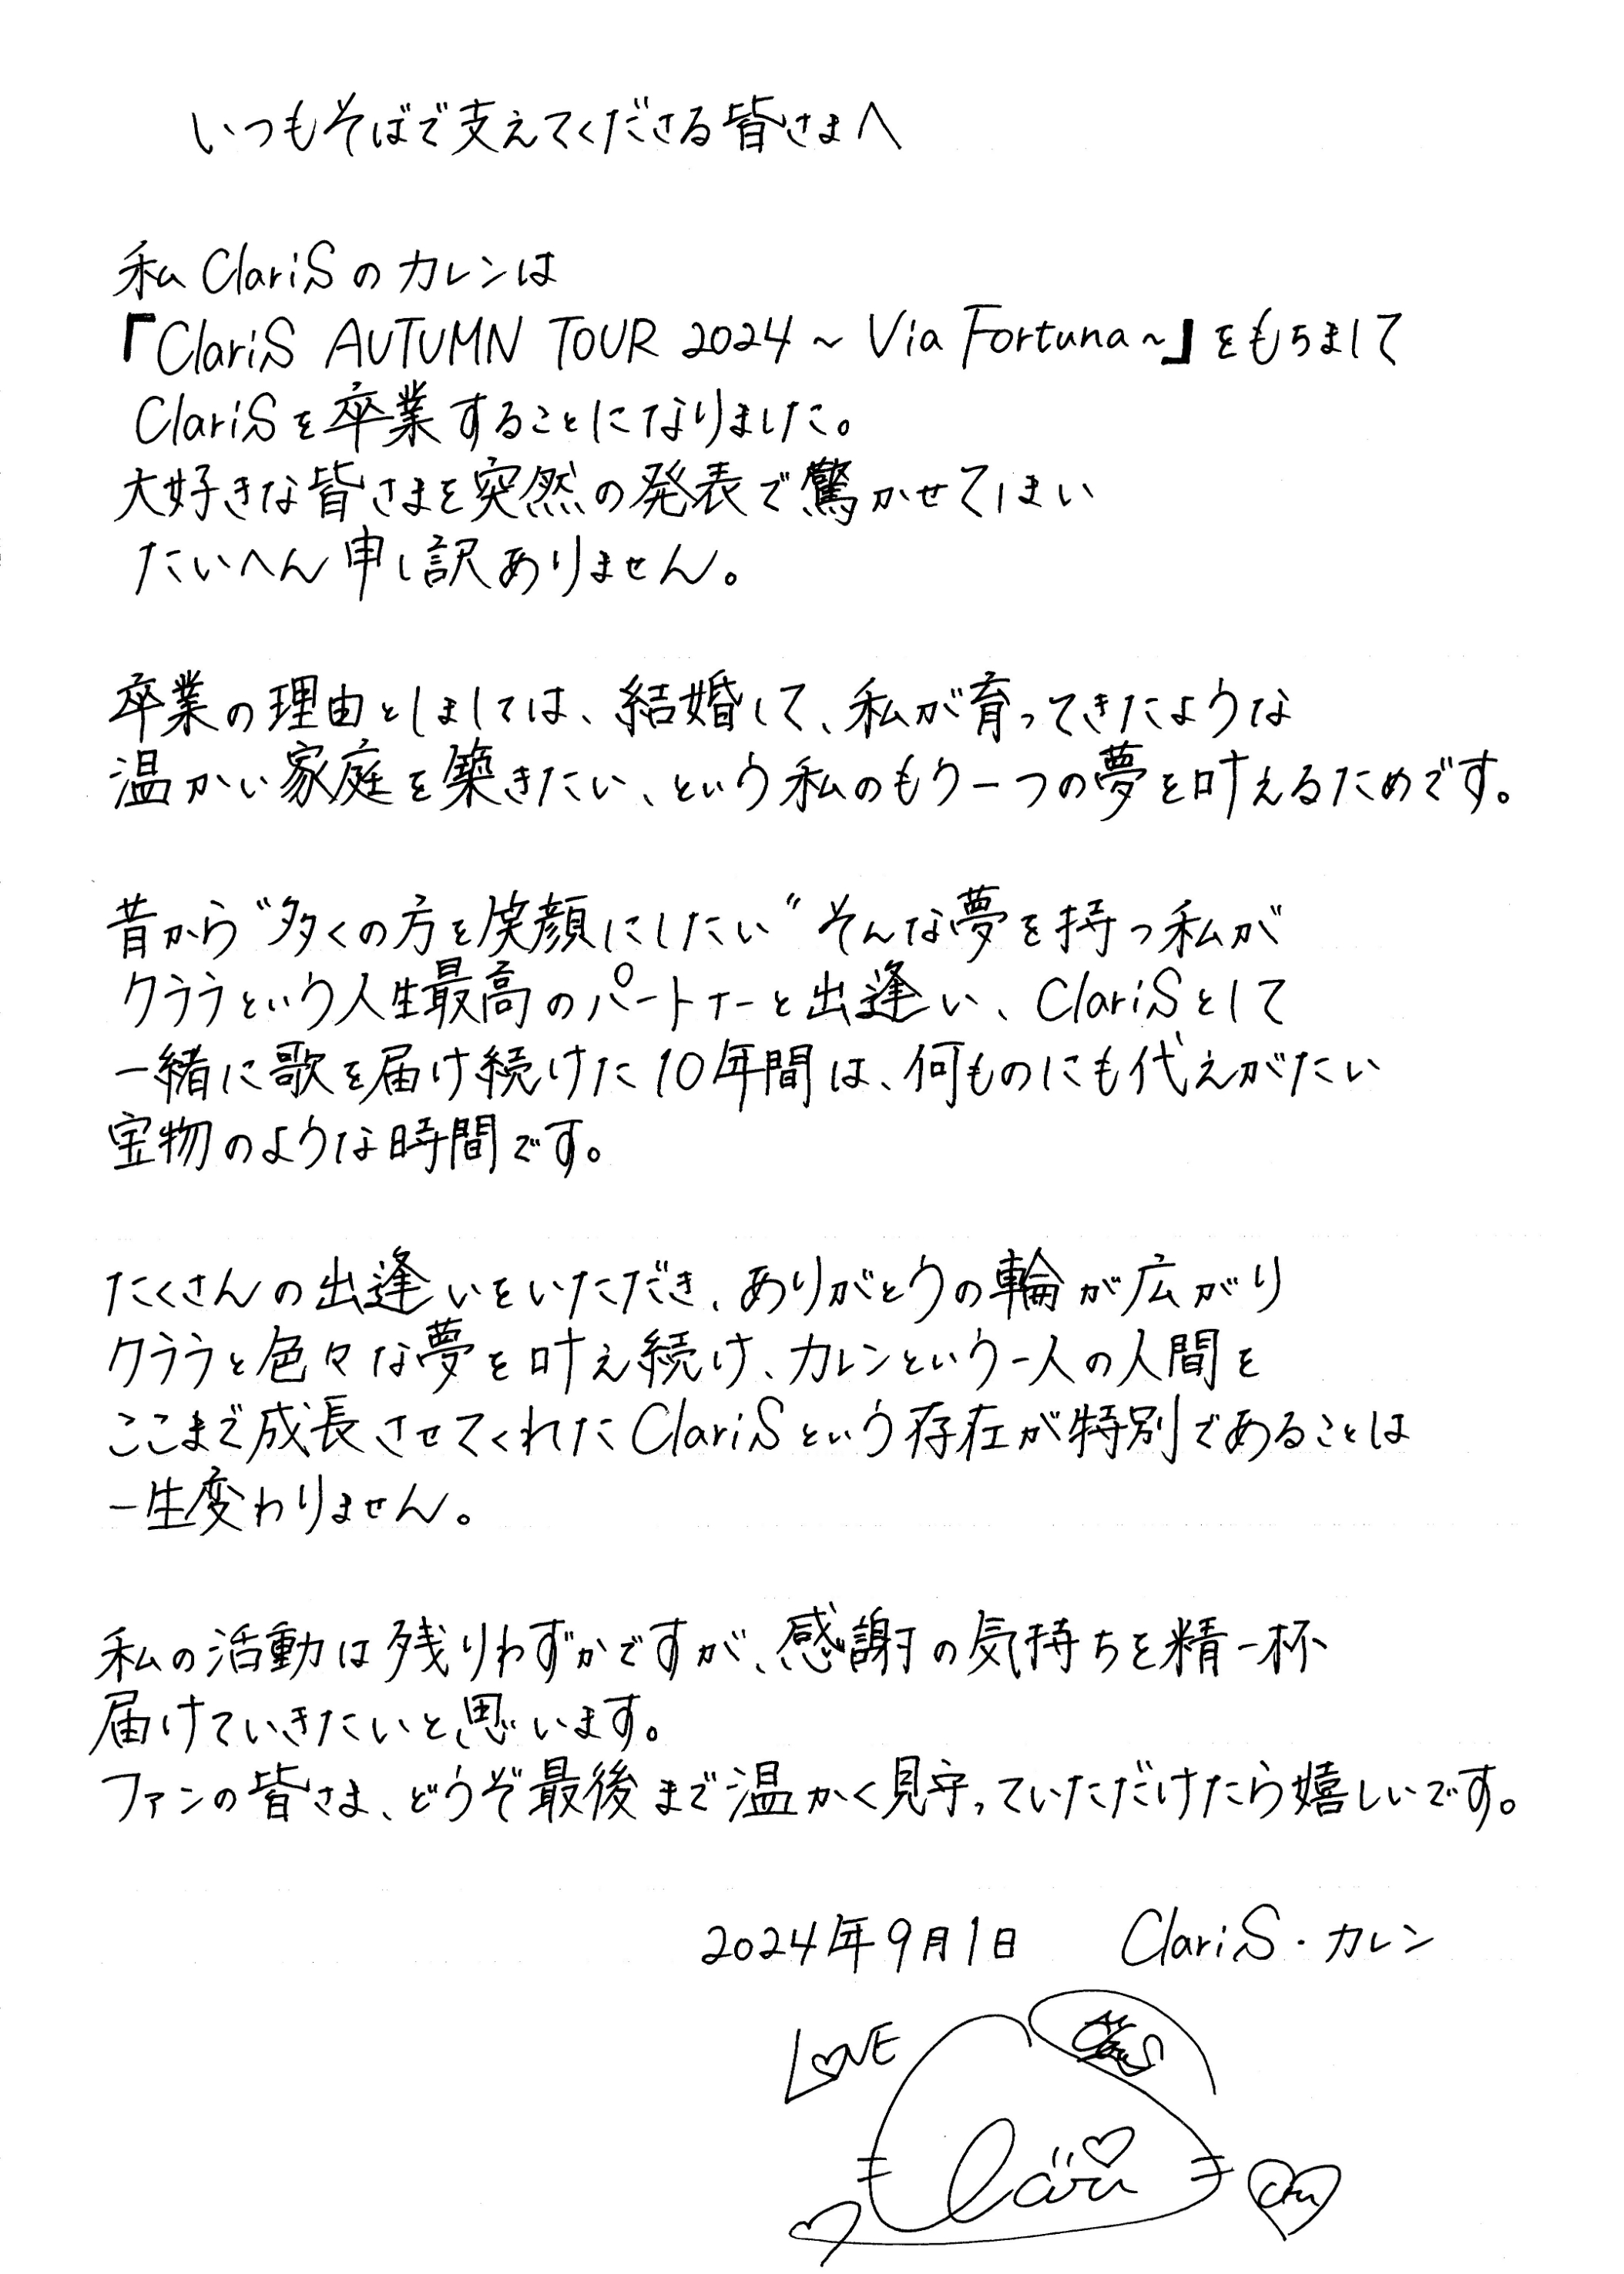 いつもそばで支えてくださる皆さまへ
私ClariSのカレンは
「ClariS AUTUMN TOUR 2024 ~ Via Fortuna ~」をもちまして
ClariSを卒業することになりました。
大好きな皆さまを突然の発表で驚かせてしまい
たいへん申し訳ありません。
卒業の理由としましては、結婚して、私が育ってきたような
温かい家庭を築きたい、という私のもう一つの夢を叶えるためです。
昔から“多くの方を笑顔にしたい”そんな夢を持つ私が
クララという人生最高のパートナーと出逢い、ClariSとして
一緒に歌を届け続けた10年間は、何ものにも代えがたい
宝物のような時間です。
たくさんの出逢いをいただき、ありがとうの輪が広がり
クララと色々な夢を叶え続け、カレンという一人の人間を
ここまで成長させてくれたClariSという存在が特別であることは
一生変わりません。
私の活動は残りわずかですが、感謝の気持ちを精一杯
届けていきたいと思います。
ファンの皆さま、どうぞ最後まで温かく見守っていただけたら嬉しいです。
2024年9月1日 ClariS・カレン
LOVE